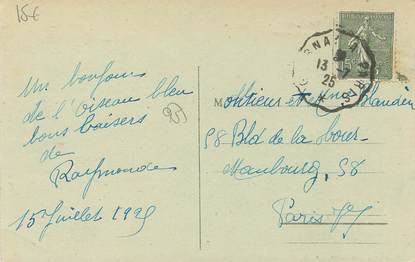 15€
Un bonjour
de l'Oiseau bleu
bons baisers
de
Raymonde
15 Juillet 1925
Monsieur et Mme
58 Bld de la Tour-
Maubourg, 58
Paris
13 -7
25
15